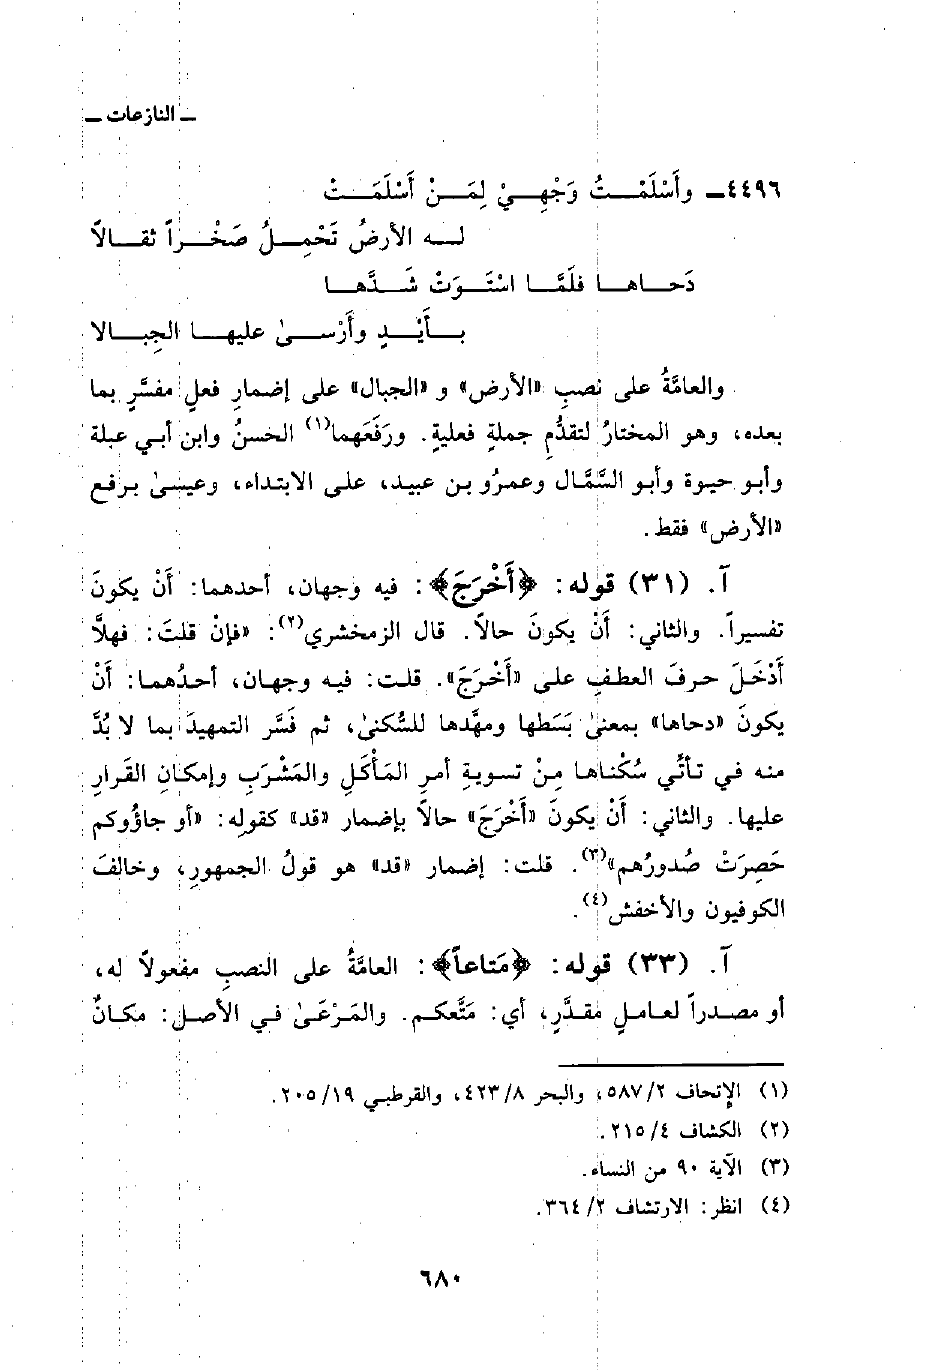 ـ النازعات ـ
٤٤٩٦ـ وأَسْلَمْـــتُ وَجْهِـــيْ لِمَـــنْ أَسْلَمَـــتْ
لـــه الأرضُ تَحْمِـــلُ صَخْـــراً ثقـــالاً
دَحـــاهـــا فلَمَّـــا اسْتَـــوَتْ شَـــدَّهـــا
بـــأَيْـــدٍ وأَرْســـىٰ عليهـــا الجِبـــالا
والعامَّةُ على نصبِ «الأرض» و «الجبال» على إضمارِ فعلٍ مفسَّرٍ بما
بعده، وهو المختارُ لتقدُّمِ جملةٍ فعليةٍ. ورَفَعَهما(١) الحسنُ وابن أبي عبلة
وأبو حيوة وأبو السَّمَّال وعمرُو بن عبيد، على الابتداء، وعيسىٰ برفع
«الأرض» فقط.
آ. (٣١) قوله: ﴿أَخْرَجَ﴾: فيه وجهان، أحدهما: أَنْ يكونَ
تفسيراً. والثاني: أَنْ يكونَ حالاً. قال الزمخشري(٢): «فإنْ قلتَ: فهلَّا
أَدْخَلَ حرفَ العطفِ على «أَخْرَجَ». قلت: فيه وجهان، أحدُهما: أَنْ
يكونَ «دحاها» بمعنىٰ بَسَطها ومهَّدها للسُّكنىٰ، ثم فَسَّر التمهيدَ بما لا بُدَّ
منه في تأتِّي سُكْناها مِنْ تسويةِ أمرِ المَأْكَلِ والمَشْرَبِ وإمكانِ القَرارِ
عليها. والثاني: أَنْ يكونَ «أَخْرَجَ» حالاً بإضمار «قد» كقولِه: «أو جاؤُوكم
حَصِرَتْ صُدورُهم»(٣). قلت: إضمار «قد» هو قولُ الجمهورِ، وخالفَ
الكوفيون والأخفش(٤).
آ. (٣٣) قوله: ﴿مَتاعاً﴾: العامَّةُ على النصبِ مفعولاً له،
أو مصدراً لعاملٍ مقدَّرٍ، أي: مَتَّعكم. والمَرْعَىٰ في الأصل: مكانٌ
(١) الإتحاف ٥٨٧/٢، والبحر ٤٢٣/٨، والقرطبي ٢٠٥/١٩.
(٢) الكشاف ٢١٥/٤.
(٣) الآية ٩٠ من النساء.
(٤) انظر: الارتشاف ٣٦٤/٢.
٦٨٠